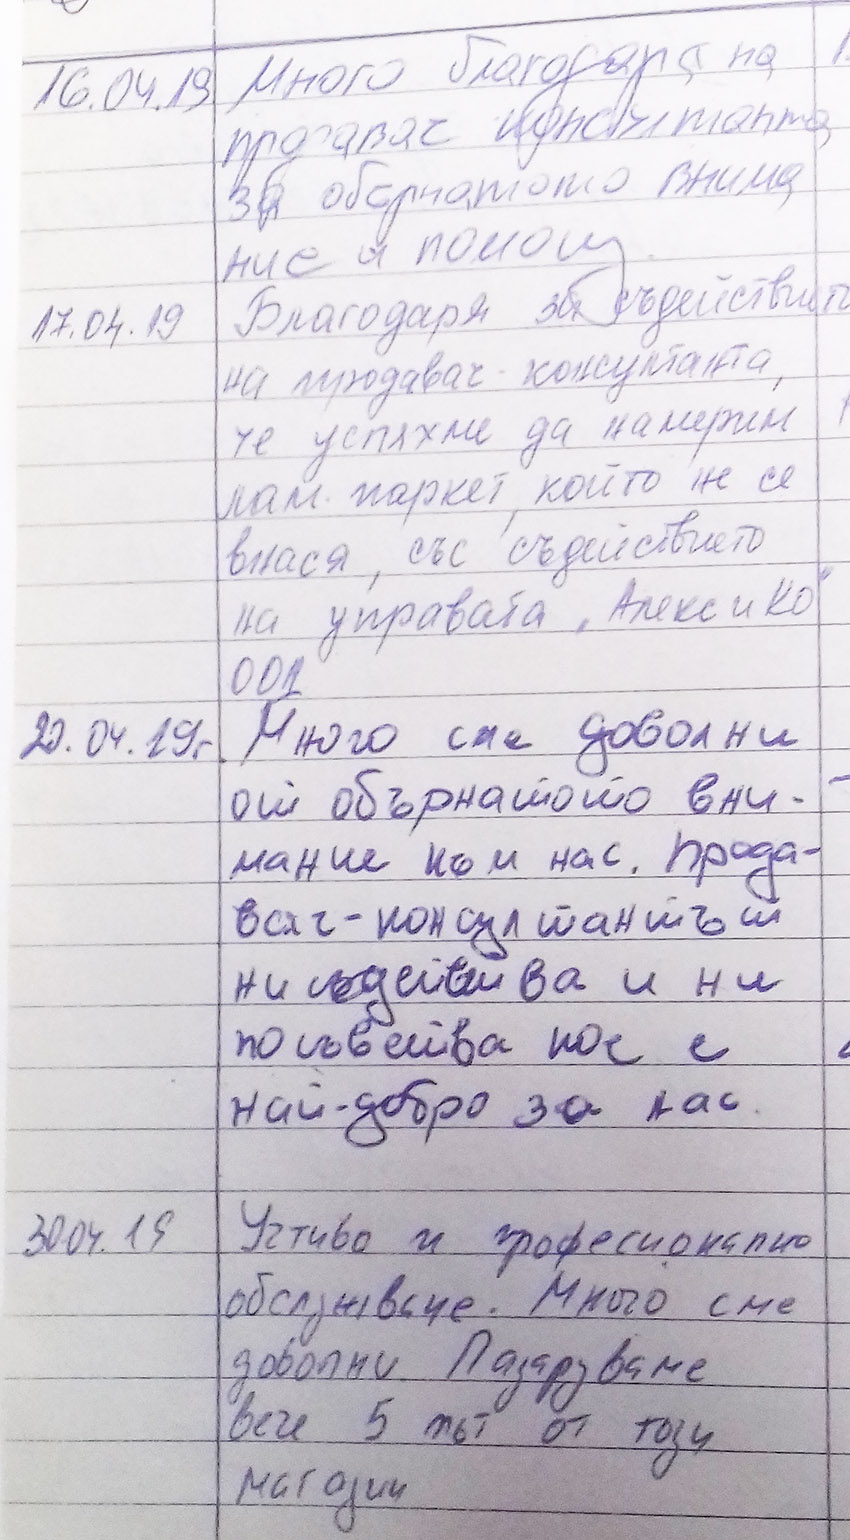 16.04.19 Много благодаря на
продавач консултанта
за обърнатото внима
ние и помощ.
17.04.19 Благодаря за съдействието
на продавач-консултанта,
че успяхме да намерим
лам. паркет, който не се
внася, със съдействието
на управата „Алекс и Ко"
001
20.04.19г. Много сме доволни
от обърнатото вни-
мание към нас. Прода-
вач-консултантът
ни съдейства и ни
посъветва кое е
най-добро за нас.
30.04.19 Учтиво и професионално
обслужване. Много сме
доволни Пазаруваме
вече 5 път от този
магазин